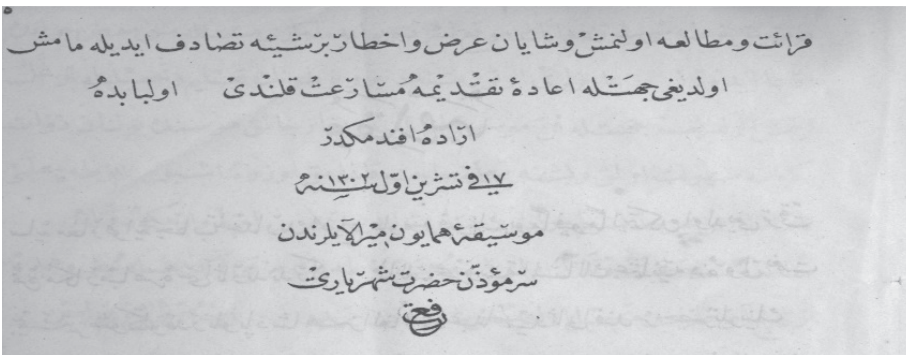 قرائت و مطالعه اولنمش و شایان عرض و اخطار برشیئه تصادف ایدیله مامش
اولدیغی جهتله اعادۀ تقدیمه مسارعت قلندی اولبابده
ارادہ افندمکدر
فی ١٧ تشرین اول سنه ١٣٠٢
موسیقۀ همایون میرالایلرندن
سرمؤذن حضرت شهریاری
رفعت